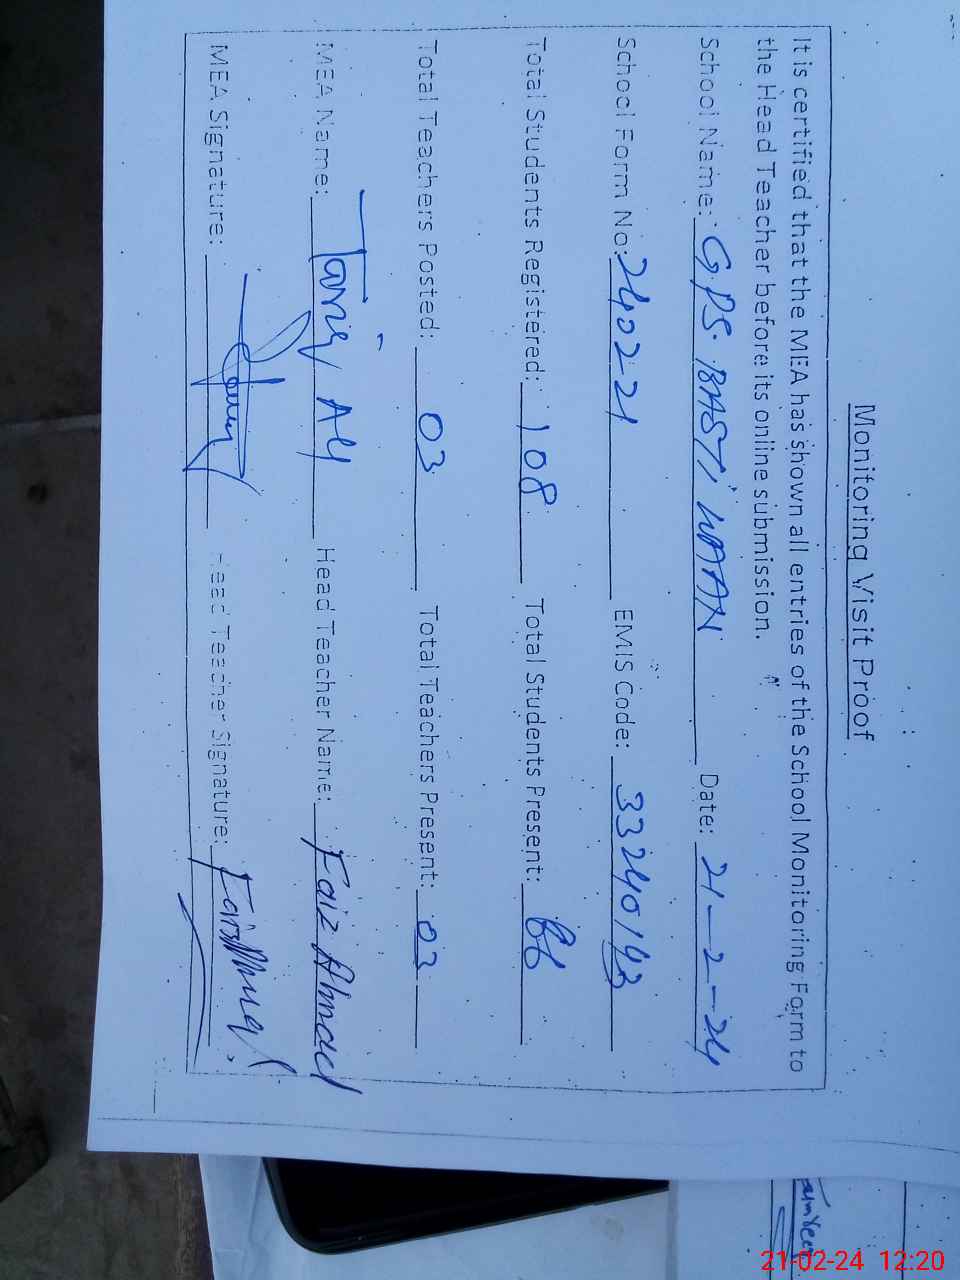 Monitoring Visit Proof
It is certified that the MEA has shown all entries of the School Monitoring Form to
the Head Teacher before its online submission.
School Name: G.P.S. BASTI Date: 21-2-24
School Form No: 240221 EMIS Code: 33240143
Total Students Registered: 108 Total Students Present: 86
Total Teachers Posted: 03 Total Teachers Present: 03
MEA Name: Tariq Aly Head Teacher Name: Faiz Ahmad
MEA Signature: Head Teacher Signature:
21-02-24 12:20